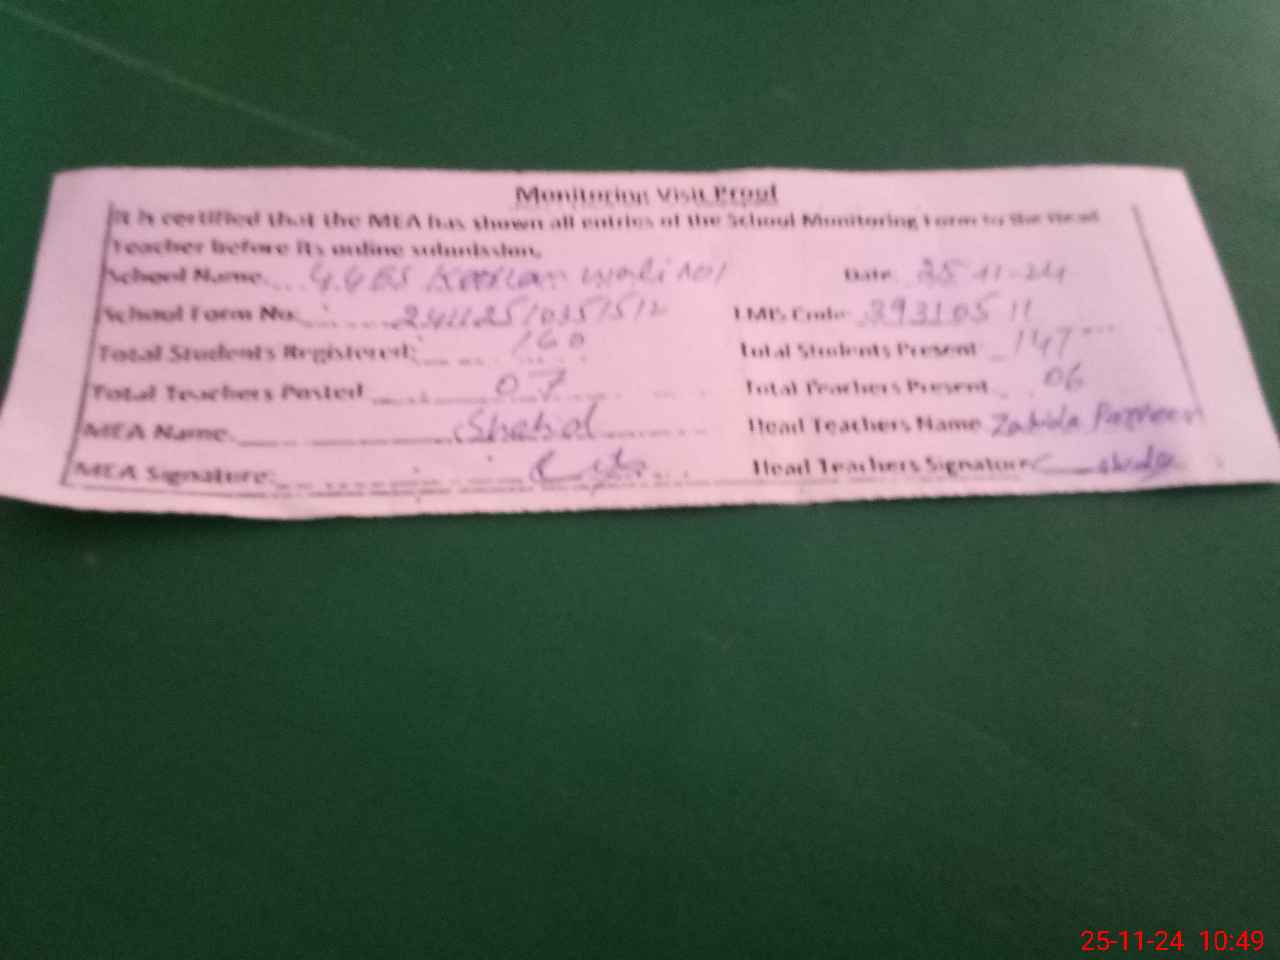 Monitoring Visit Proof
It is certified that the MEA has shown all entries of the School Monitoring Form to the Head
Teacher before its online submission.
School Name Date 25-11-24
School Form No: EMIS Code 39310511
Total Students Registered: 160 Total Students Present 147
Total Teachers Posted 07 Total Teachers Present 06
MEA Name Shahid Head Teachers Name Zahida Parveen
MEA Signature: Head Teachers Signature
25-11-24 10:49